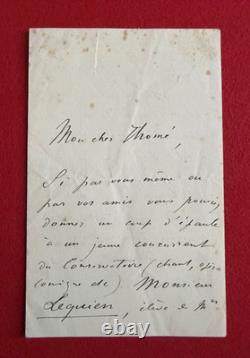 Mon cher Thomé,
Si par vous même ou
par vos amis vous pouvez
donner un coup d'épaule
à un jeune concurrent
du Conservatoire (chant, opéra
comique etc) Monsieur
Lequien, élève de Mr
ebay